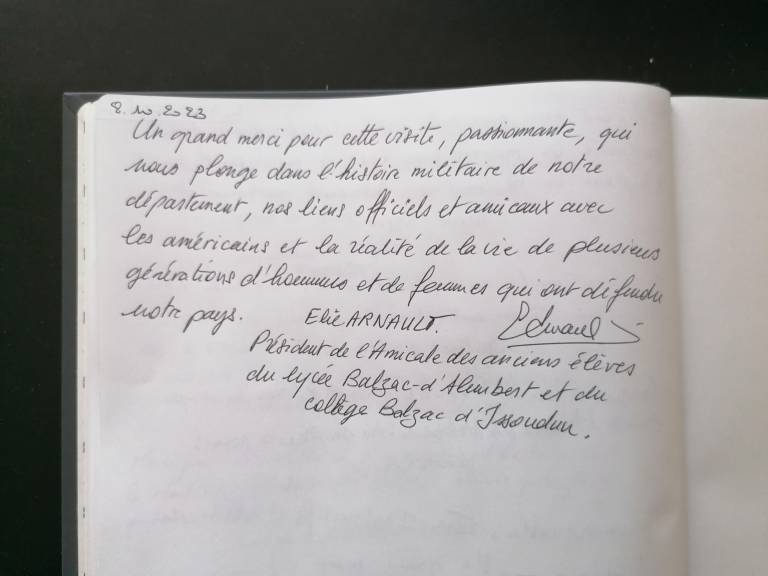 8.10.2023
Un grand merci pour cette visite, passionnante, qui
nous plonge dans l'histoire militaire de notre
département, nos liens officiels et amicaux avec
les américains et la réalité de la vie de plusieurs
générations d'hommes et de femmes qui ont défendu
notre pays.
Elie ARNAULT.
Président de l'Amicale des anciens élèves
du lycée Balzac-d'Alembert et du
collège Balzac d'Issoudun.